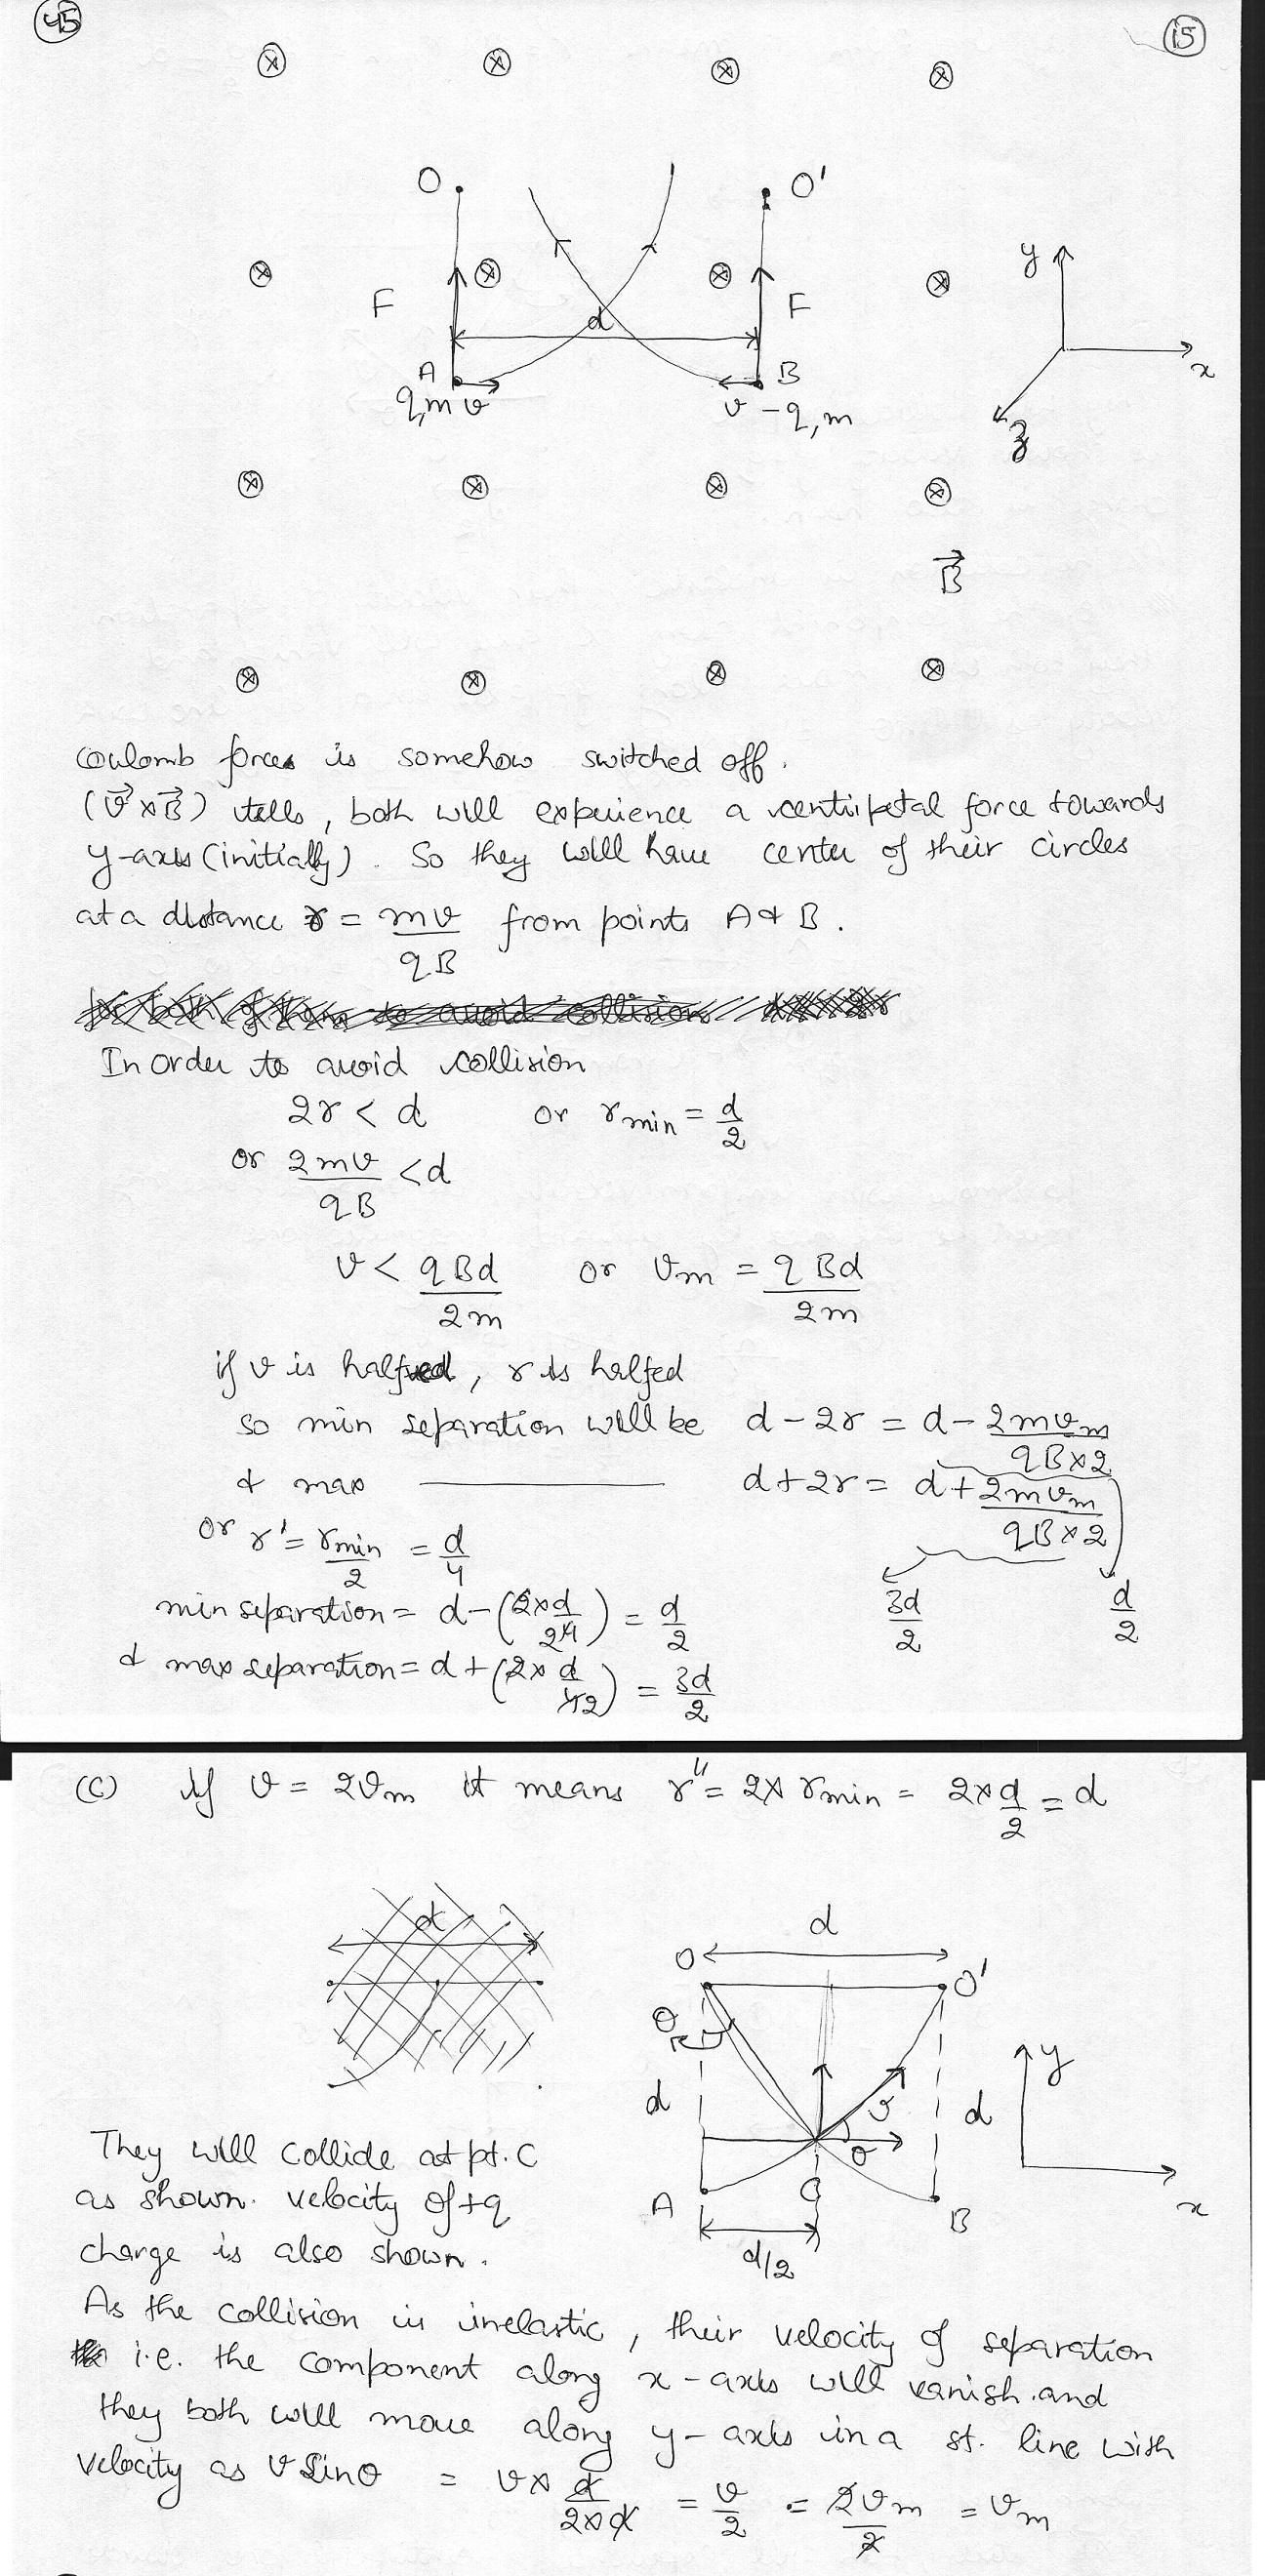 45
15
O
O'
y
F
F
d
A
B
x
q,m v
v -q,m
z
B⃗
coulomb force is somehow switched off.
(v⃗×B⃗) tells, both will experience a centripetal force towards
y-axis (initially). So they will have center of their circles
at a distance r = mv/qB from points A & B.
In order to avoid collision
2r < d or rmin = d/2
or 2mv/qB < d
v < qBd/2m or vm = qBd/2m
if v is halfed, r is halfed
so min separation will be d-2r = d - 2mvm/qB×2
& max ——— d+2r = d + 2mvm/qB×2
or r' = rmin/2 = d/4
3d/2 d/2
min separation = d-(2×d/4 2) = d/2
& max separation = d+(2×d/4 2) = 3d/2
(C) If v = 2vm it means r'' = 2×rmin = 2×d/2 = d
d
d
O
O'
θ
y
d
v
d
θ
They will collide at pt. C
as shown. velocity of +q
charge is also shown.
A
C
B
x
d/2
As the collision is inelastic, their velocity of separation
i.e. the component along x-axis will vanish.and
they both will move along y-axis in a st. line with
velocity as v Sinθ = v× d/2×d = v/2 = 2vm/2 = vm